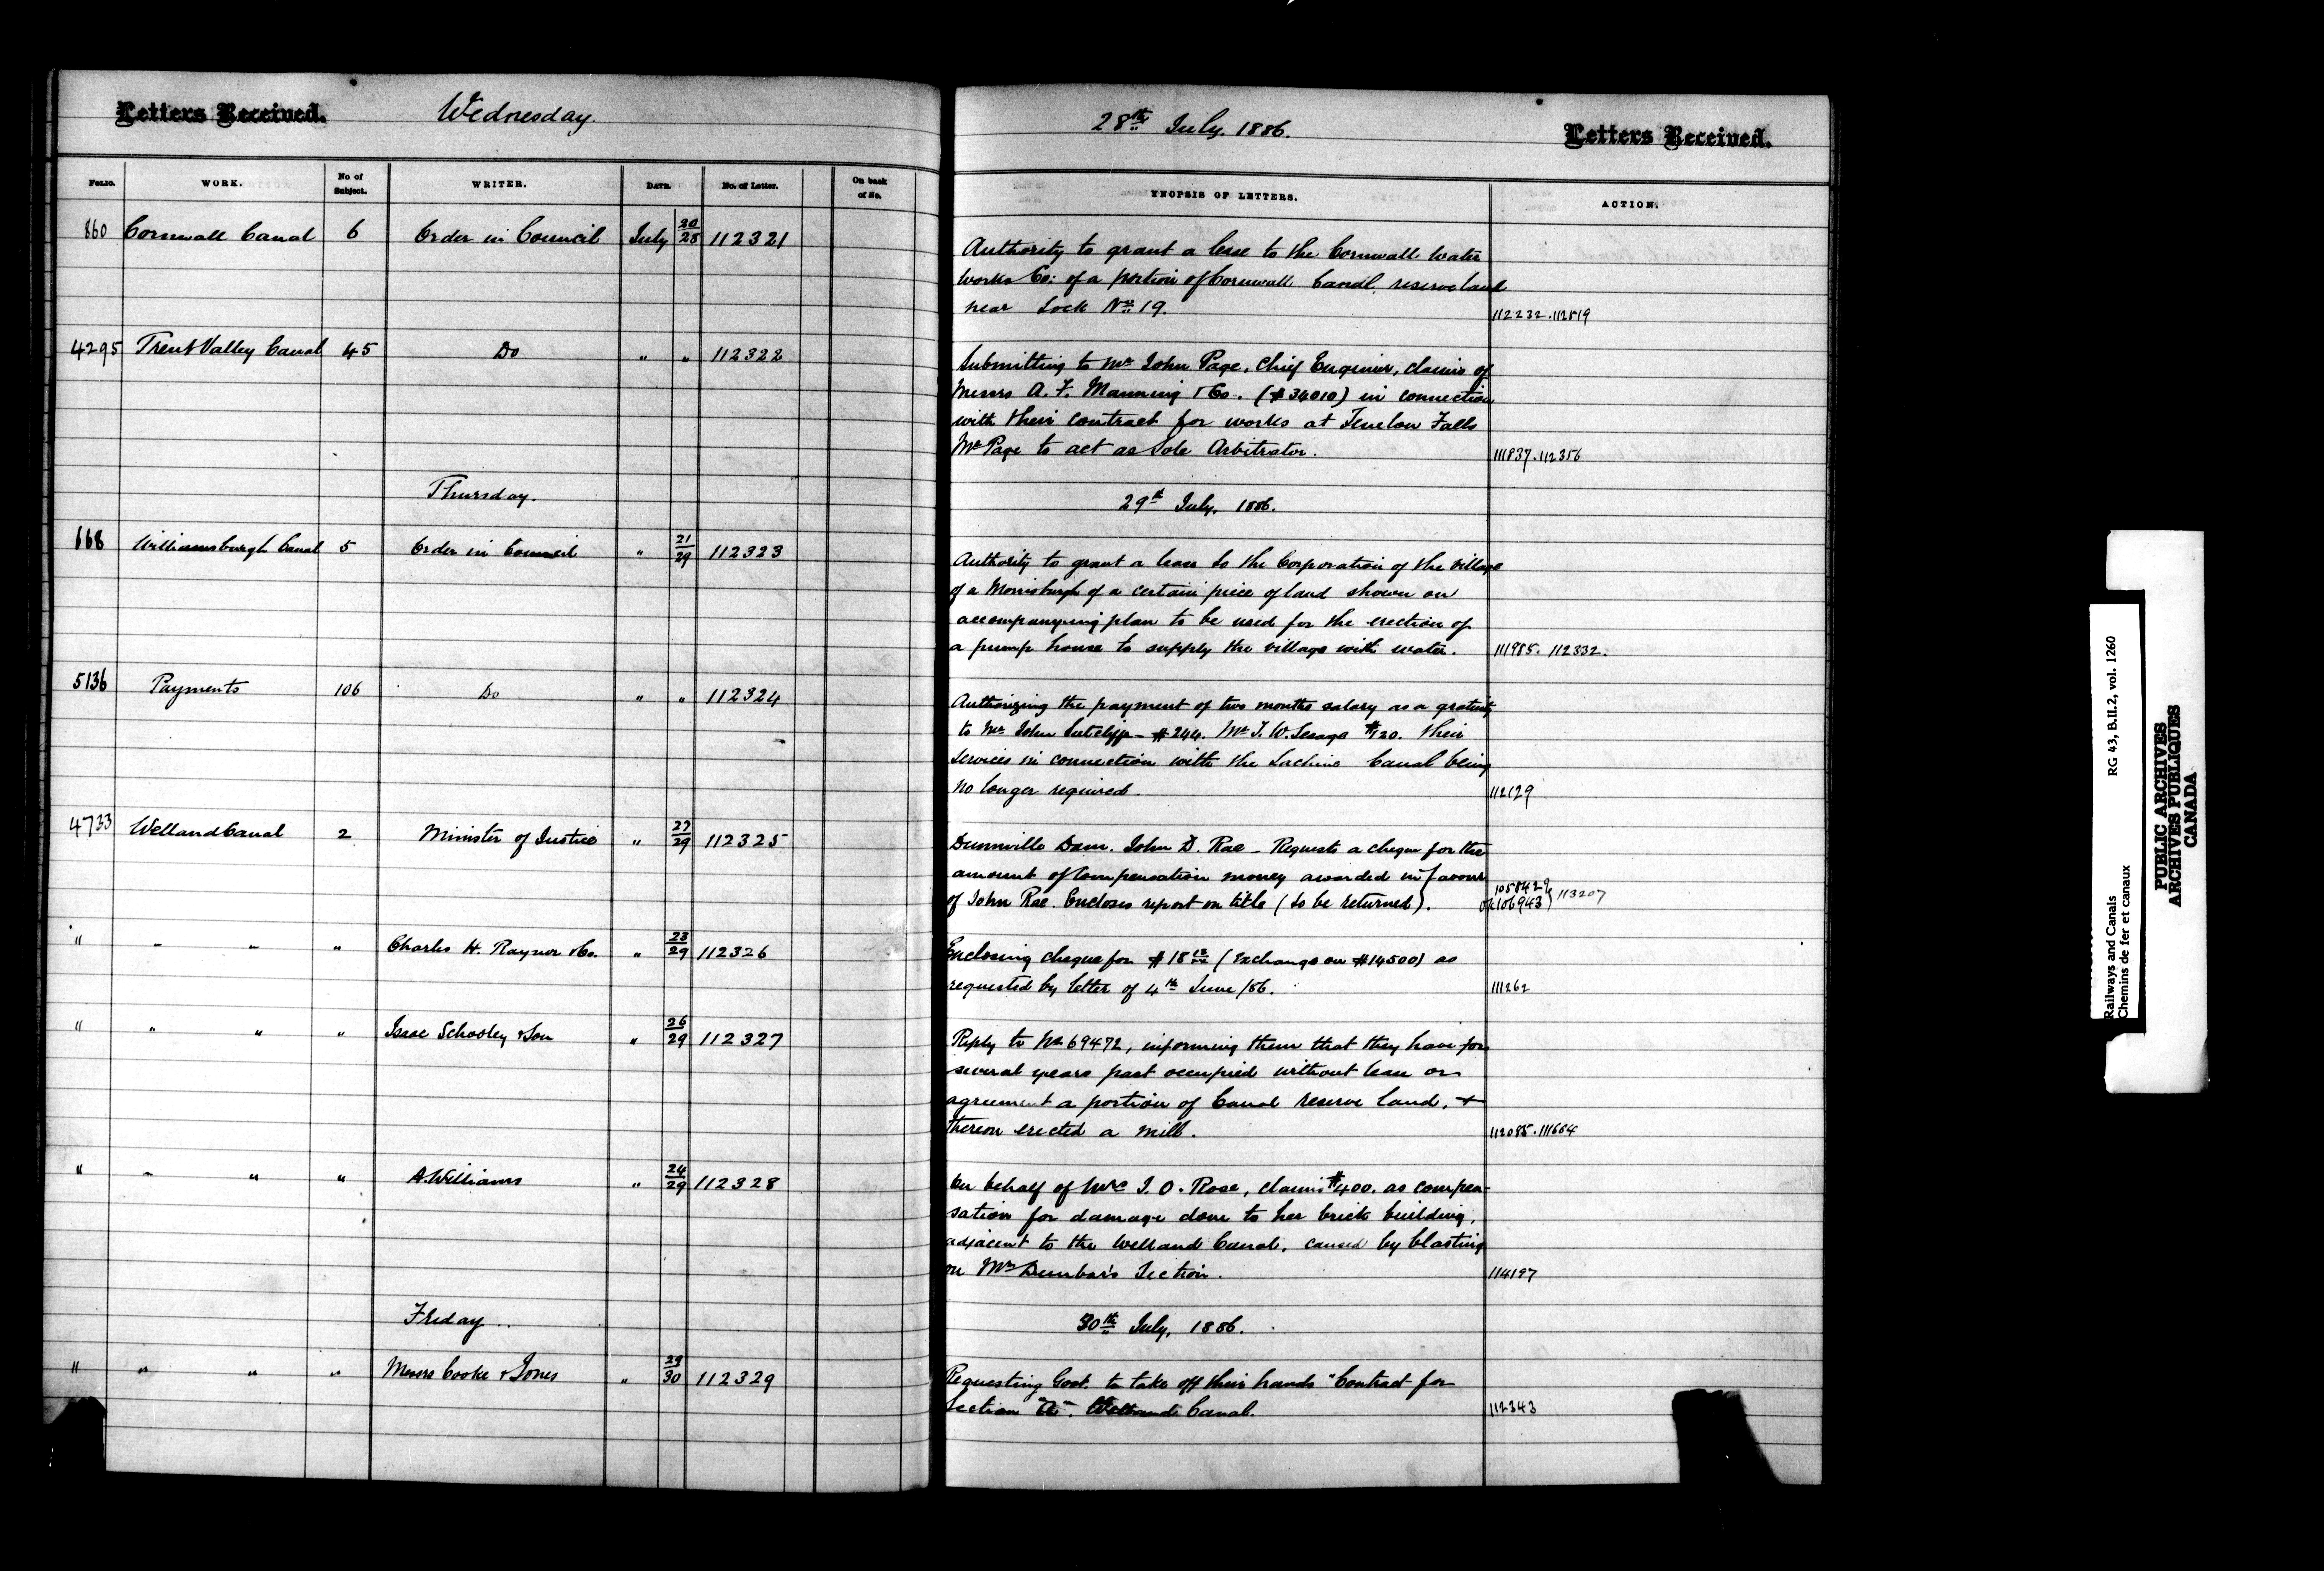 Letters Received. Wednesday. 28th July. 1886. Letters Received.
FOLIO. WORK. No of Subject. WRITER. DATE. No. of Letter. On back of No. SYNOPSIS OF LETTERS. ACTION.
860 Cornwall Canal 6 Order in Council July 20/28 112321
Authority to grant a lease to the Cornwall Water
Works Co: of a portion of Cornwall Canal reserve land
near Lock No 19. 112232.112519
4295 Trent Valley Canal 45 Do " " 112322
Submitting to Mr John Page, Chief Engineer, claims of
Messrs A. F. Manning & Co. ($34010) in connection
with their contract for works at Fenelon Falls
Mr Page to act as Sole Arbitrator. 111837.112356
Thursday. 29th July, 1886.
668 Williamsburgh Canal 5 Order in Council " 21/29 112323
Authority to grant a lease to the Corporation of the village
of a Morrisburgh of a certain piece of land shown on
accompanying plan to be used for the erection of
a pump house to supply the village with water. 111985. 112332.
5136 Payments 106 Do " " 112324
Authorizing the payment of two months salary as a gratuity
to Mr John Sutcliffe - $244. Mr T. W. Lesage $120. Their
services in connection with the Lachine Canal being
no longer required. 112129
4733 Welland Canal 2 Minister of Justice " 27/29 112325
Dunnville Dam. John D. Rae - Requests a cheque for the
amount of Compensation money awarded in favour
of John Rae. Encloses report on title (to be returned). 106943 113207
" - - " Charles H. Raynor & Co. " 23/29 112326
Enclosing cheque for $18 (Exchange on $14500) as
requested by letter of 4th June /86. 111262
" " " " Isaac Schooley & Son " 26/29 112327
Reply to No 69472, informing them that they have for
several years past occupied without lease or
agreement a portion of Canal reserve land, +
thereon erected a mill. 112085.111664
" - " " A. Williams " 24/29 112328
On behalf of Mrs J. O. Rose, claims $400. as compen-
sation for damage done to her brick building,
adjacent to the Welland Canal, caused by blasting
on Mr Dunbar's Section. 114197
Friday.. 30th July, 1886.
" " " " Messrs Cooke & Jones " 29/30 112329
Requesting Govt. to take off their hands "Contract for
Section "A". Welland Canal. 112343
Railways and Canals RG 43, B.II.2, vol. 1260
Chemins de fer et canaux
PUBLIC ARCHIVES
ARCHIVES PUBLIQUES
CANADA